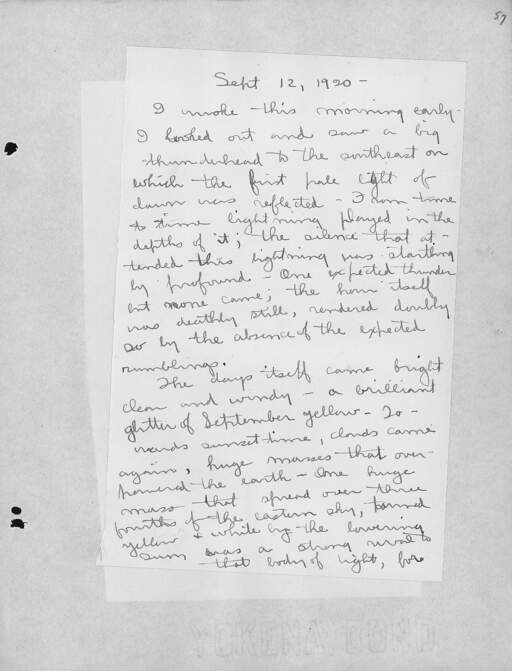 57
Sept 12, 1920 -
I woke this morning early -
I looked out and saw a big
thunderhead to the southeast on
which the first pale light of
dawn was reflected - From time
to time lightning played in the
depths of it; the silence that at-
tended this lightning was startling
ly profound - One expected thunder
but none came; the hour itself
was deathly still, rendered doubly
so by the absence of the expected
rumblings.
The days itself came bright
clear and windy - a brilliant
glitter of September yellow - To-
wards sunset time, clouds came
again, huge masses that over-
powered the earth - One huge
mass that spread over three
fourths of the eastern sky, turned
yellow & white by the lowering
sun was a strong rival to
that body of light, for